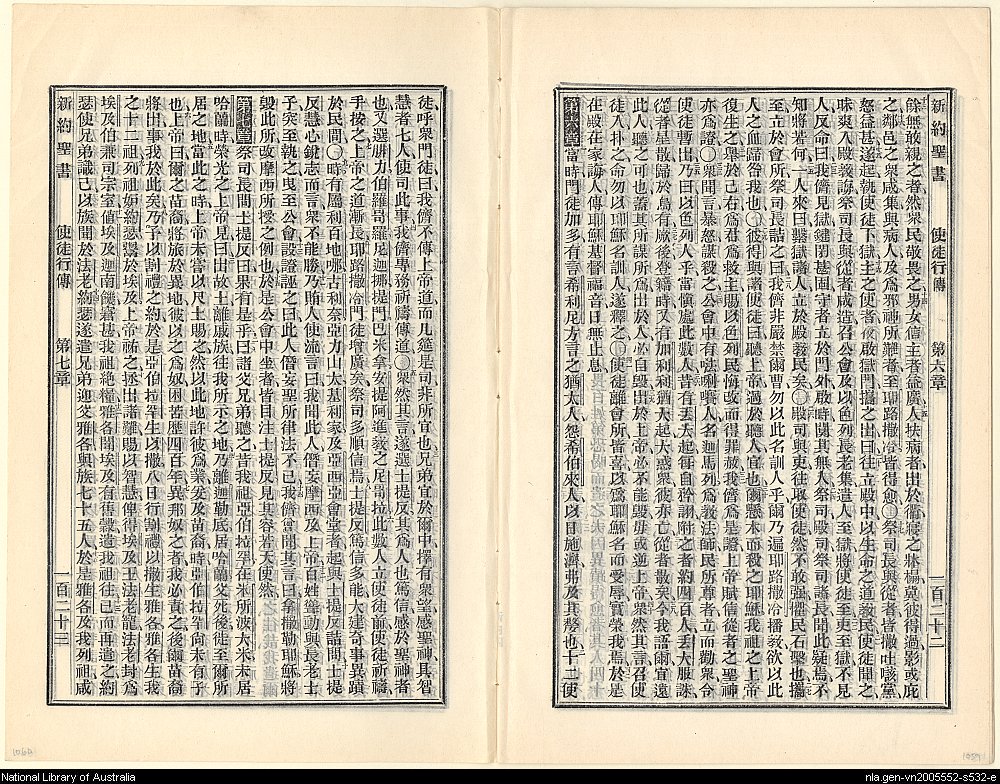 新約聖書 使徒行傳 第六章 一百二十二
餘無敢親之者然衆民敬畏之男女信主者益廣人扶病者出於衢寢之牀榻冀彼得過影或庇
之鄰邑之衆咸集與病人及爲邪神所難者至耶路撒冷皆得愈○祭司長與從者皆撒吐㗇黨
怒益甚遂起執使徒下獄主之使者夜啟獄門攜之出曰往立殿中以生命之道敎民使徒聞之
昧爽入殿敎誨祭司長與從者咸造召公會及以色列長老集遣人至獄將使徒至吏至獄不見
人反命曰我儕見獄鍵閉甚固守者立於門外啟時闃其無人祭司殿司祭司諸長聞此疑焉不
知將若何一人來曰繫獄諸人立於殿敎民矣○殿司與吏往取使徒然不敢强懼民石擊也攜
至立於會所祭司長詰之曰我儕非嚴禁爾曹勿以此名訓人乎爾乃遍耶路撒冷播敎欲以此
人之血歸咎我也○彼得與諸使徒曰聽上帝過於聽人宜也爾懸木而殺之耶穌我祖之上帝
復生之舉於己右爲君爲救主賜以色列民悔改而得罪赦我儕爲是證上帝賦信從者之聖神
亦爲證○衆聞言暴怒謀殺之公會中有𠵽唎㘔人名迦馬列爲敎法師民所尊者立而勸衆令
使徒暫出乃曰以色列人乎當愼處此數人昔有丟大起自矜誷附之者約四百人丟大服誅
從者星散歸於烏有厥後登籍時又有加利利猶大起大惑衆彼亦亡從者散矣今我語爾宜遠
此人聽之可也蓋其所謀所爲出於人必自毀出於上帝必不能毀毋或逆上帝衆然其言召使
徒入扑之命勿以耶穌名訓人遂釋之○使徒離會所皆喜以爲耶穌名而受辱實榮我焉於是
在殿在家誨人傳耶穌基督福音日無止息
第六章當時門徒加多有言希利尼方言之猶太人怨希伯來人以日施濟弗及其嫠也十二使
新約聖書 使徒行傳 第七章 一百二十三
徒呼衆門徒曰我儕不傳上帝道而几筵是司非所宜也兄弟宜於爾中擇有衆望感聖神具智
慧者七人使司此事我儕專務祈禱傳道○衆然其言遂選士提反其爲人也篤信感於聖神者
也又選腓力伯羅哥羅尼迦挪提門巴米拿安提阿進敎之尼哥拉此數人立使徒前使徒祈禱
手按之上帝之道漸長耶路撒冷門徒增廣矣祭司多順信焉士提反篤信多能大建奇事異蹟
於民間○時有屬利百地哪古利奈亞力山太基利家及亞西亞會堂者起與士提反詰問士提
反慧心銳志而言衆不能勝乃賄人使流言曰我聞此人僭妄摩西及上帝百姓聳動與長老士
子突至執之曳至公會設證誣之曰此人僭妄聖所律法不已我儕嘗聞其言曰拿撒勒耶穌將
毀此所改摩西所授之例也於是公會中坐者皆目注士提反見其容若天使然
第七章祭司長問士提反曰果有是乎曰諸父兄弟聽之昔我祖亞伯拉罕在米所波大米未居
哈蘭時榮光之上帝見曰出故土離戚族往我所示之地乃離迦勒底居哈蘭父死後徙至爾所
居之地當此之時上帝未嘗以尺土賜之然以此地許彼爲業爰及苗裔時亞伯拉罕尙未有子
也上帝曰爾之苗裔將旅於異地彼以之爲奴困苦歷四百年異邦奴之者我必責之後爾苗裔
將出事我於此矣乃予以割禮之約於是亞伯拉罕生以撒八日行割禮以撒生雅各雅各生我
之十二祖列祖妬約瑟鬻於埃及上帝祐之拯出諸難賜以智慧俾得埃及王法老寵法老封爲
埃及伯兼司宗室値埃及迦南饑窘甚我祖絶糧雅各聞埃及有穀遣我祖往已而再遣之約
瑟使兄弟識己以族聞於法老約瑟遂遣兄弟迎父雅各與族七十五人於是雅各及我列祖咸
National Library of Australia
nla.gen-vn2005552-s532-e